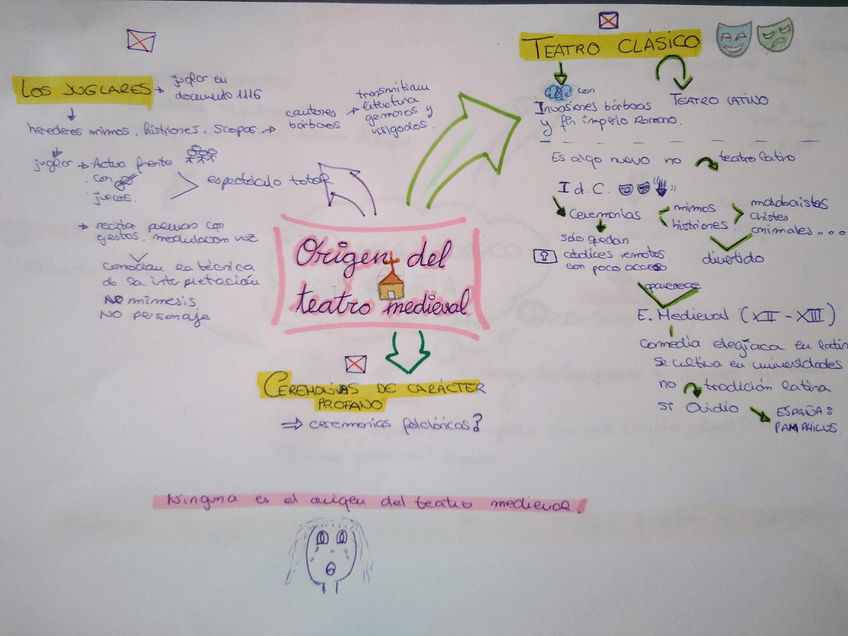 LOS JUGLARES
juglar en
documento 1116
herederos mimos, histriones, scopas
cantores
bárbaros
transmitían
literatura
germanos y
visigodos.
juglar
Actúa frente
con
jueces.
espectáculo total
recitar poemas con
gestos, modulación voz
conocían la técnica
de la interpretación
NO mimesis
NO personaje
TEATRO CLÁSICO
con
Invasiones bárbaras
y fin imperio Romano.
TEATRO LATINO
Es algo nuevo no
teatro latino
I d. C.
Ceremonias
mimos
histriones
malabaristas
chistes
animales...
divertido
sólo quedan
códices remotos
con poco acceso
aparece
E. Medieval (XII - XIII)
comedia elegíaca en latín
se cultiva en universidades
no tradición latina
sí Ovidio
ESPAÑA:
PAMPHILUS
Origen del
teatro medieval
CEREMONIAS DE CARÁCTER
PROFANO
⇒ ceremonias folclóricas?
Ninguna es el origen del teatro medieval.